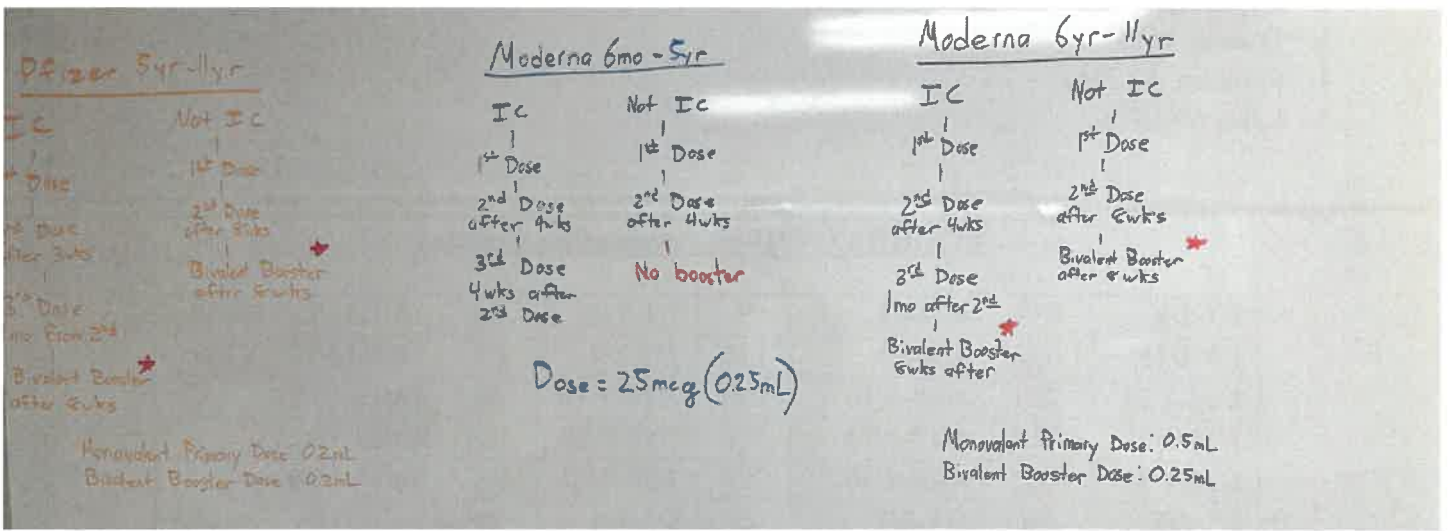 Pfizer 5yr-11yr
IC
1st Dose
2nd Dose
after 3wks
3rd Dose
1mo from 2nd
Bivalent Booster
after 8wks
Not IC
1st Dose
2nd Dose
after 8wks
Bivalent Booster
after 8wks
Monovalent Primary Dose 0.2mL
Bivalent Booster Dose 0.2mL
Moderna 6mo - 5yr
IC
1st Dose
2nd Dose
after 4wks
3rd Dose
4wks after
2nd Dose
Not IC
1st Dose
2nd Dose
after 4wks
No booster
Dose = 25mcg (0.25mL)
Moderna 6yr-11yr
IC
1st Dose
2nd Dose
after 4wks
3rd Dose
1mo after 2nd
Bivalent Booster
8wks after
Not IC
1st Dose
2nd Dose
after 8wks
Bivalent Booster
after 8wks
Monovalent Primary Dose: 0.5mL
Bivalent Booster Dose: 0.25mL